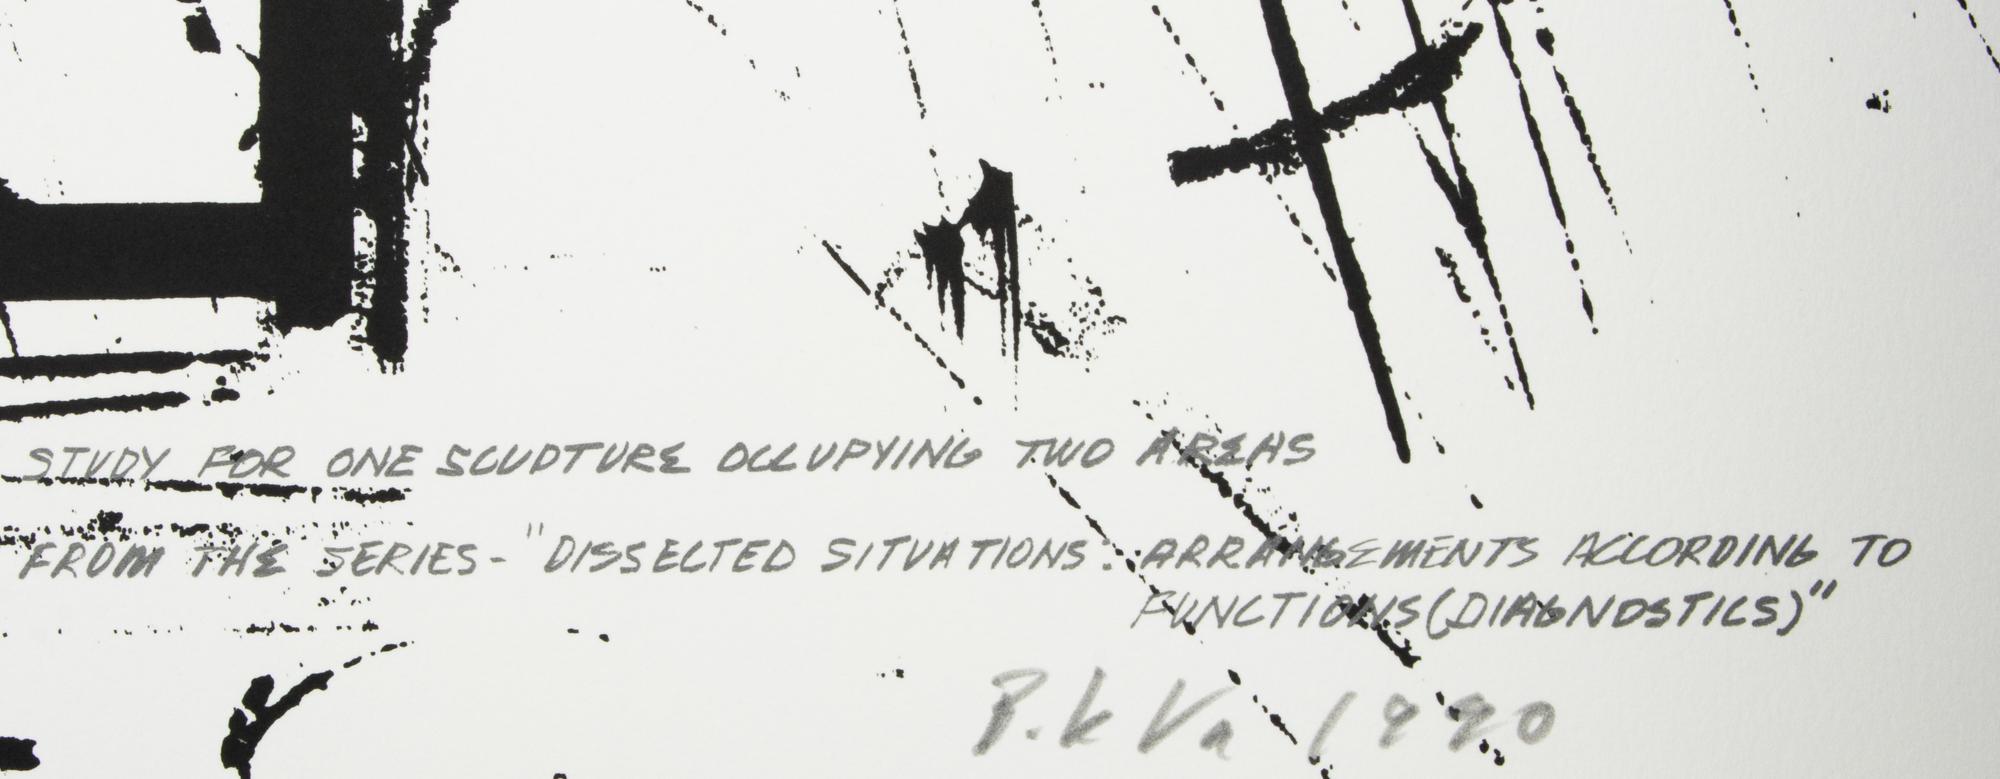 STUDY FOR ONE SCULPTURE OCCUPYING TWO AREAS
FROM THE SERIES - "DISSECTED SITUATIONS: ARRANGEMENTS ACCORDING TO
FUNCTIONS (DIAGNOSTICS)"
1990